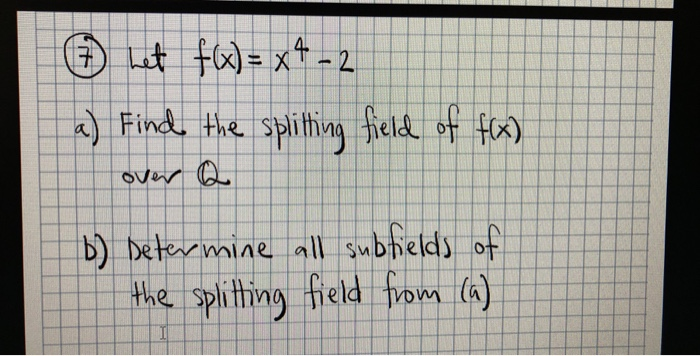 ⑦ Let f(x) = x⁴ - 2
a) Find the splitting field of f(x)
over Q
b) Determine all subfields of
the splitting field from (a)